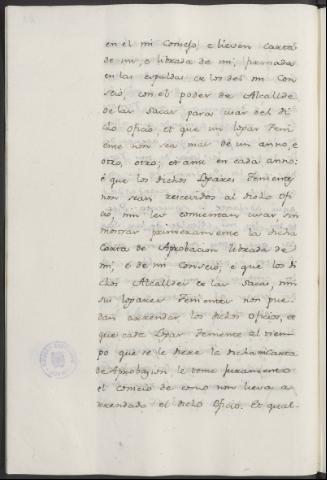 en el mi Consejo, e lieven carta
de mi, e librada de mi, firmada
en las espaldas de los del mi Con
sejo, con el poder de Alcallde
de las Sacas para usar del di
cho oficio et que un Logar Teni
ente non sea mas de un anno, e
otro, otro; et ansi en cada anno:
é que los dichos Logares Tenientes
non sean rescividos al dicho Ofi
cio, nin les consientan usar, sin
mostrar primeramente la dicha
Carta de Aprobacion librada de
mi, ó de mi Consejo, e que los di
chos Alcalldes de las Sacas, nin
sus Logares Tenientes non pue
dan arrendar los dichos Oficios, et
que cada Logar Teniente al tiem
po que se le diere la dicha Carta
de Aprobacion, le tome juramento
el consejo de como non lieva a
rrendado el dicho Oficio. Et qual-